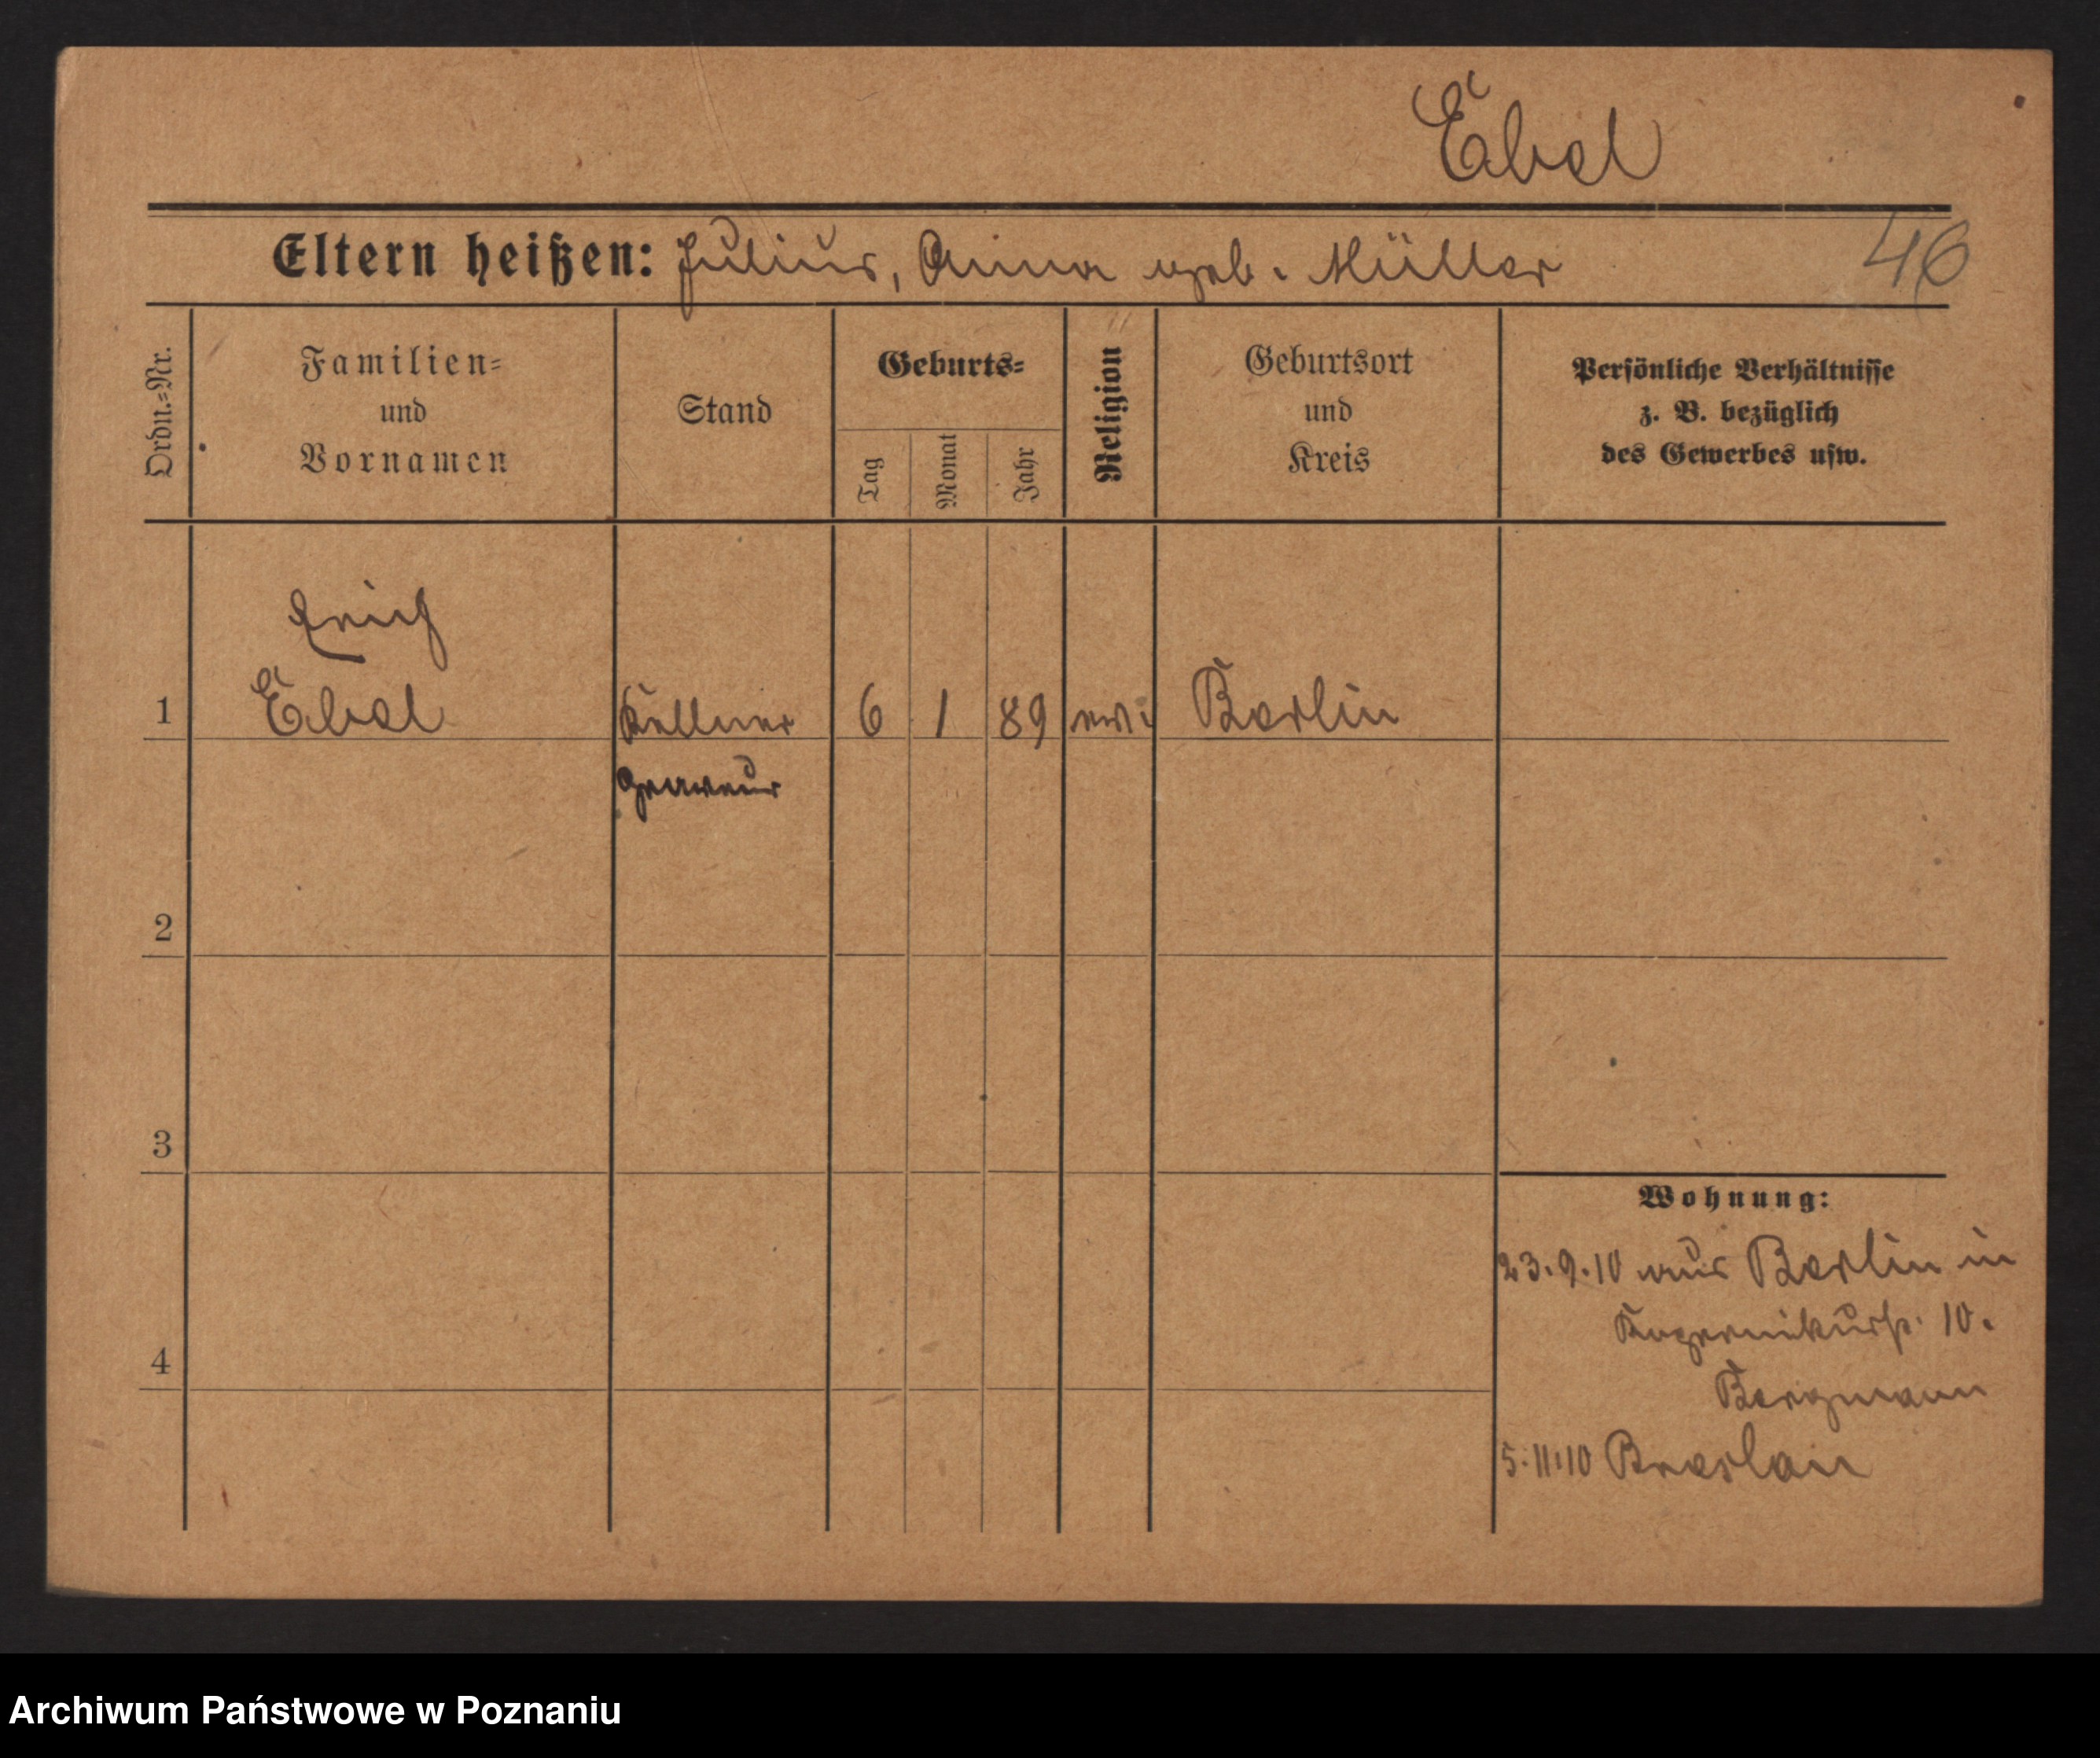 Ebel
Eltern heißen: Julius, Anna geb. Müller
46
Ordn.-Nr.
Familien-
und
Vornamen
Stand
Geburts-
Tag
Monat
Jahr
Religion
Geburtsort
und
Kreis
Persönliche Verhältnisse
z. B. bezüglich
des Gewerbes usw.
Erich
1 Ebel Kellner 6 1 89 ev. Berlin
Graveur
2
3
4
Wohnung:
23.9.10 aus Berlin in
10.
Bergmann
5.11.10 Breslau
Archiwum Państwowe w Poznaniu